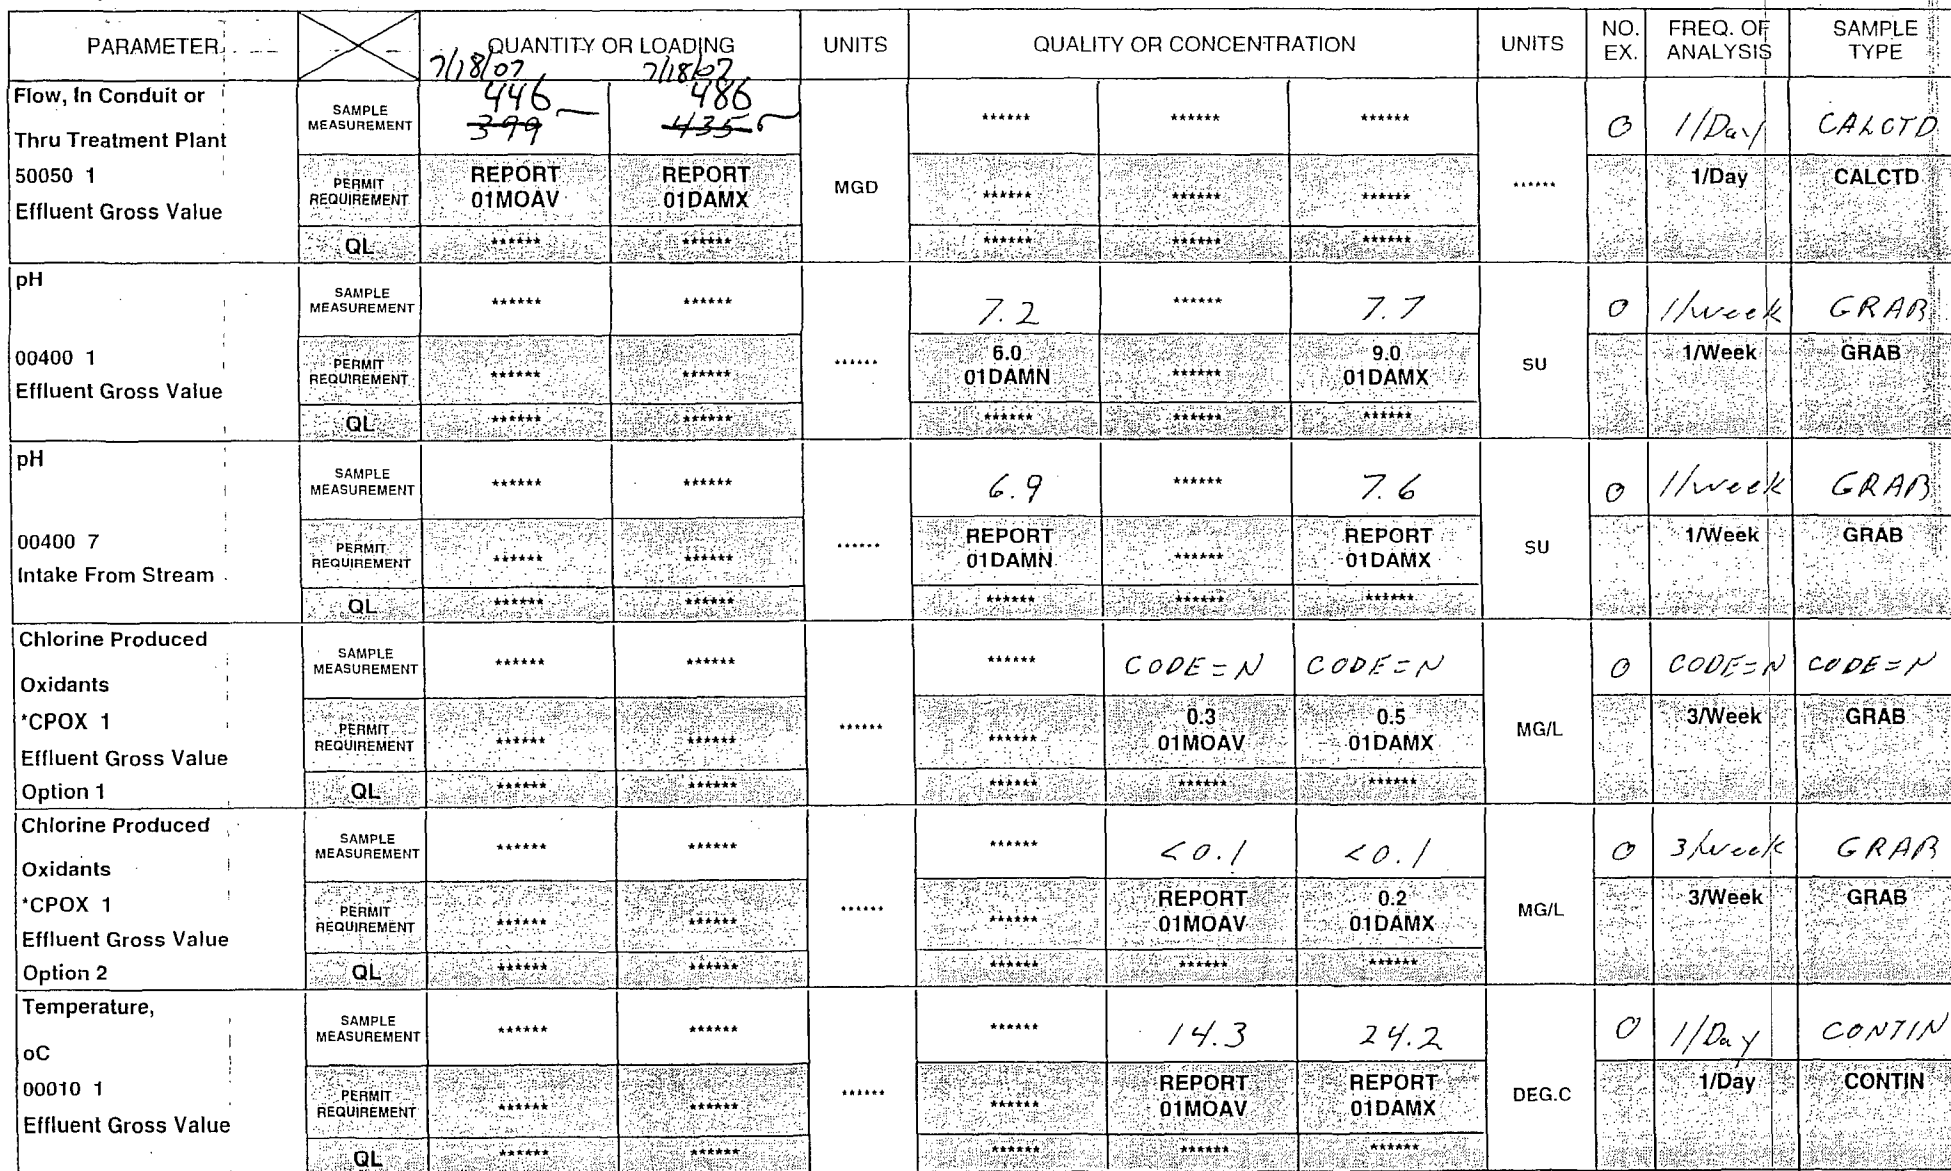 PARAMETER QUANTITY OR LOADING UNITS QUALITY OR CONCENTRATION UNITS NO. EX. FREQ. OF ANALYSIS SAMPLE TYPE
7/18/07 7/18/07
Flow, In Conduit or
Thru Treatment Plant
50050 1
Effluent Gross Value
SAMPLE MEASUREMENT 446 399 486 435 ****** ****** ****** 0 1/Day CALCTD
PERMIT REQUIREMENT REPORT 01MOAV REPORT 01DAMX MGD ****** ****** ****** ****** 1/Day CALCTD
QL ****** ****** ****** ****** ******
pH
00400 1
Effluent Gross Value
SAMPLE MEASUREMENT ****** ****** 7.2 ****** 7.7 0 1/week GRAB
PERMIT REQUIREMENT ****** ****** ****** 6.0 01DAMN ****** 9.0 01DAMX SU 1/Week GRAB
QL ****** ****** ****** ****** ******
pH
00400 7
Intake From Stream
SAMPLE MEASUREMENT ****** ****** 6.9 ****** 7.6 0 1/week GRAB
PERMIT REQUIREMENT ****** ****** ****** REPORT 01DAMN ****** REPORT 01DAMX SU 1/Week GRAB
QL ****** ****** ****** ****** ******
Chlorine Produced
Oxidants
*CPOX 1
Effluent Gross Value
Option 1
SAMPLE MEASUREMENT ****** ****** ****** CODE=N CODE=N 0 CODE=N CODE=N
PERMIT REQUIREMENT ****** ****** ****** ****** 0.3 01MOAV 0.5 01DAMX MG/L 3/Week GRAB
QL ****** ****** ****** ****** ******
Chlorine Produced
Oxidants
*CPOX 1
Effluent Gross Value
Option 2
SAMPLE MEASUREMENT ****** ****** ****** <0.1 <0.1 0 3/week GRAB
PERMIT REQUIREMENT ****** ****** ****** ****** REPORT 01MOAV 0.2 01DAMX MG/L 3/Week GRAB
QL ****** ****** ****** ****** ******
Temperature,
oC
00010 1
Effluent Gross Value
SAMPLE MEASUREMENT ****** ****** ****** 14.3 24.2 0 1/Day CONTIN
PERMIT REQUIREMENT ****** ****** ****** ****** REPORT 01MOAV REPORT 01DAMX DEG.C 1/Day CONTIN
QL ****** ****** ****** ****** ******